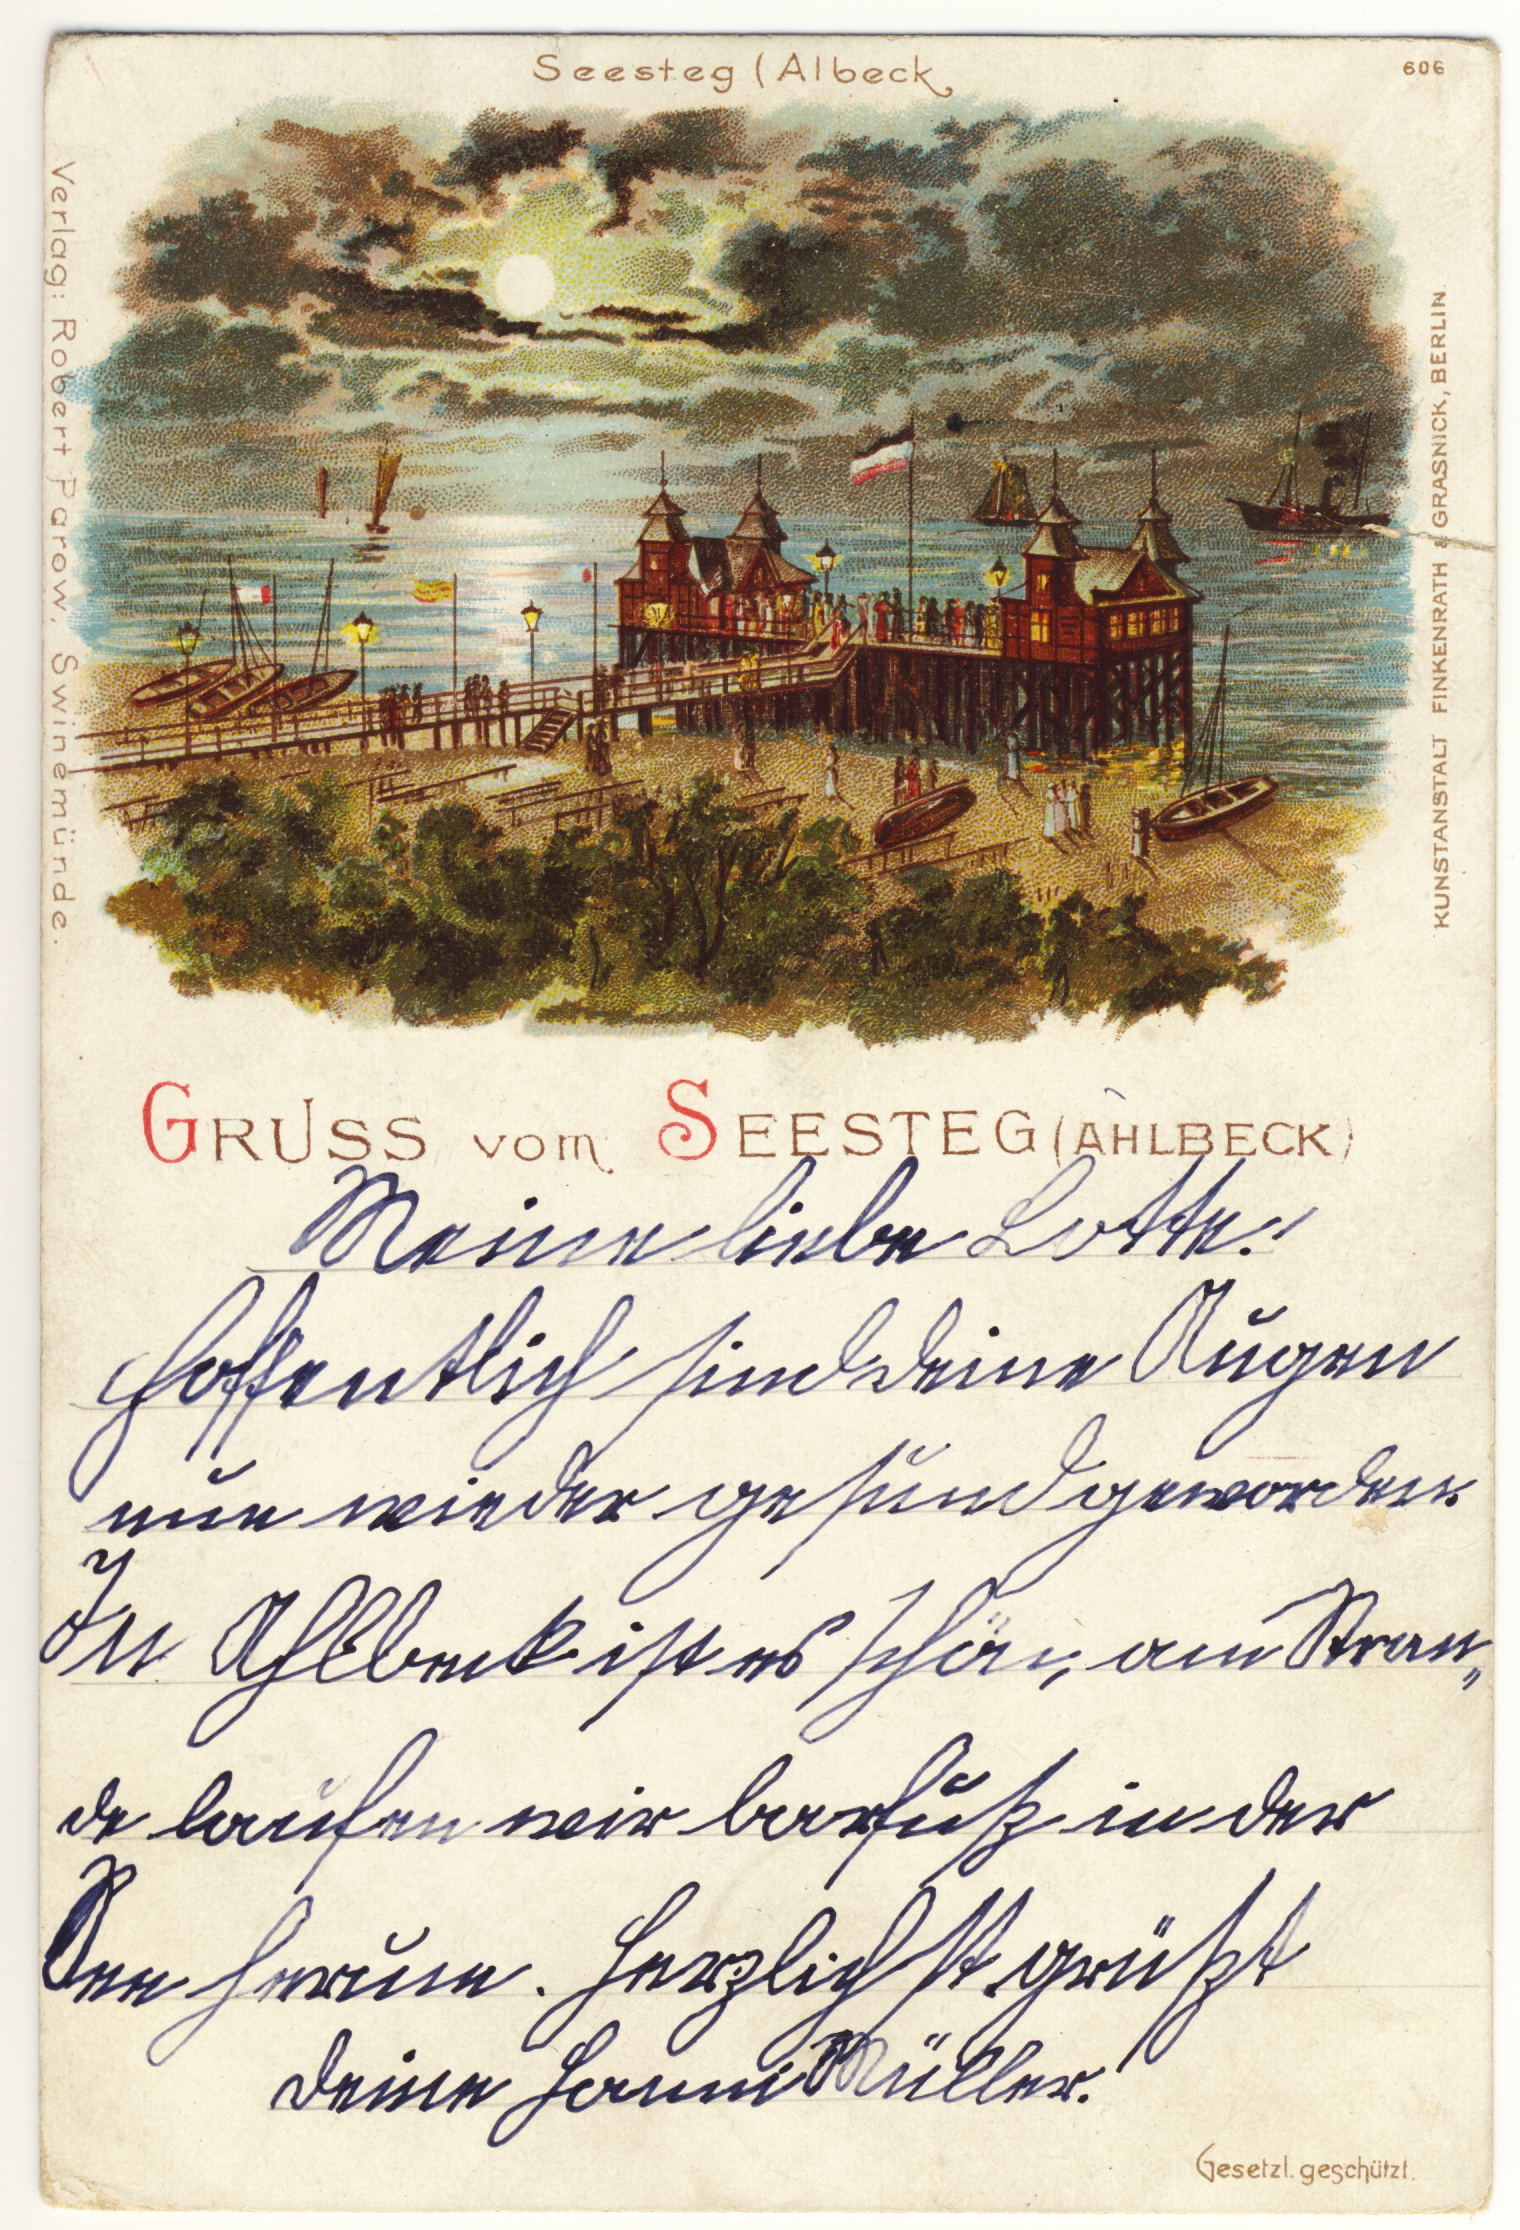 Seesteg (Albeck
606
Verlag: Robert Parow, Swinemünde.
KUNSTANSTALT FINKENRATH & GRASNICK, BERLIN.
GRUSS vom SEESTEG (AHLBECK)
Meine liebe Lotte!
Hoffentlich sind deine Augen
nun wieder gesund geworden.
In Ahlbeck ist es schön, am Stran„
de laufen wir barfuß in der
See herum. Herzlichst grüßt
deine Hanni Müller.
Gesetzl. geschützt.